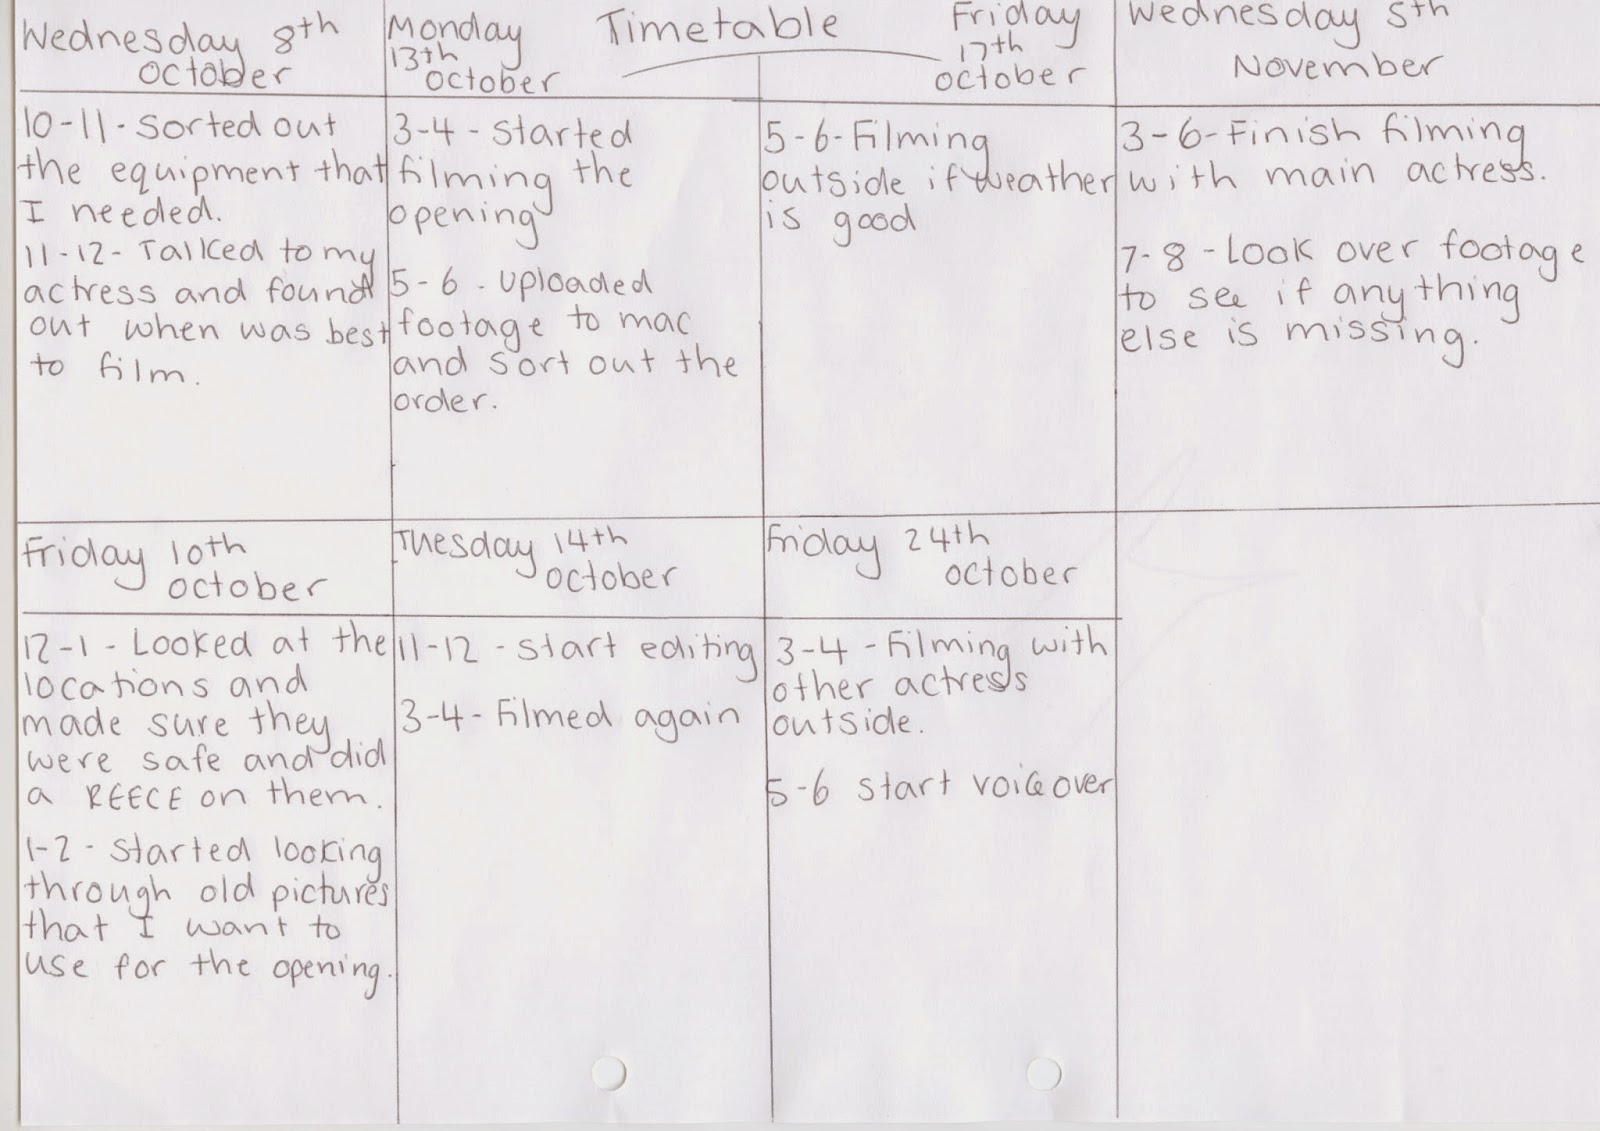 Timetable
Wednesday 8th
October
10-11-Sorted out
the equipment that
I needed.
11-12- Talked to my
actress and found
out when was best
to film.
Monday
13th
October
3-4-Started
filming the
opening
5-6-Uploaded
footage to mac
and sort out the
order.
Friday
17th
October
5-6-Filming
outside if weather
is good
Wednesday 5th
November
3-6-Finish filming
with main actress.
7-8-Look over footage
to see if anything
else is missing.
Friday 10th
October
12-1-Looked at the
locations and
made sure they
were safe and did
a REECE on them.
1-2-Started looking
through old pictures
that I want to
use for the opening.
Tuesday 14th
October
11-12-Start editing
3-4-Filmed again
Friday 24th
October
3-4-Filming with
other actress
outside.
5-6 start voiceover